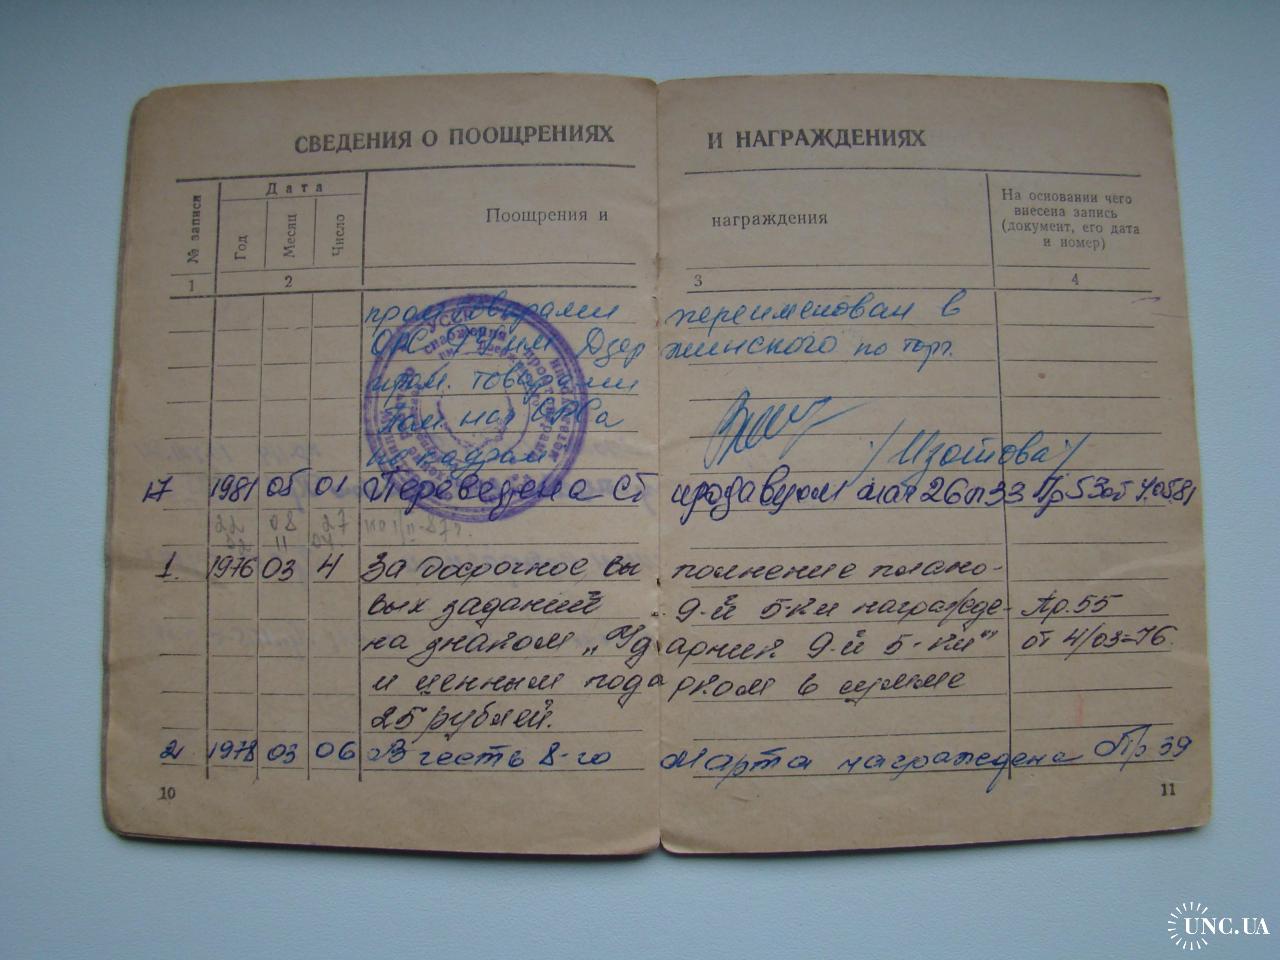 СВЕДЕНИЯ О ПООЩРЕНИЯХ И НАГРАЖДЕНИЯХ
№ записи
Дата
Год
Месяц
Число
Поощрения и награждения
На основании чего внесена запись (документ, его дата и номер)
1 2 3 4
пром. товарами переименован в
ОРС им Дзержинского по торг.
пром. товарами
Пом нач ОРСа
по кадрам /Изотова/
17 1981 05 01 Переведена ст продавцом маг 26 Пр 53 от
22 08 27
1. 1976 03 4 За досрочное выполнение плано-
вых заданий 9-й 5-ки награжде- Пр. 55
на знаком „Ударник 9-й 5-ки" от 4/03-76.
и ценным подарком в сумме
25 рублей.
2 1978 03 06 В честь 8-го Марта награждена Пр 39
10 11
UNC.UA